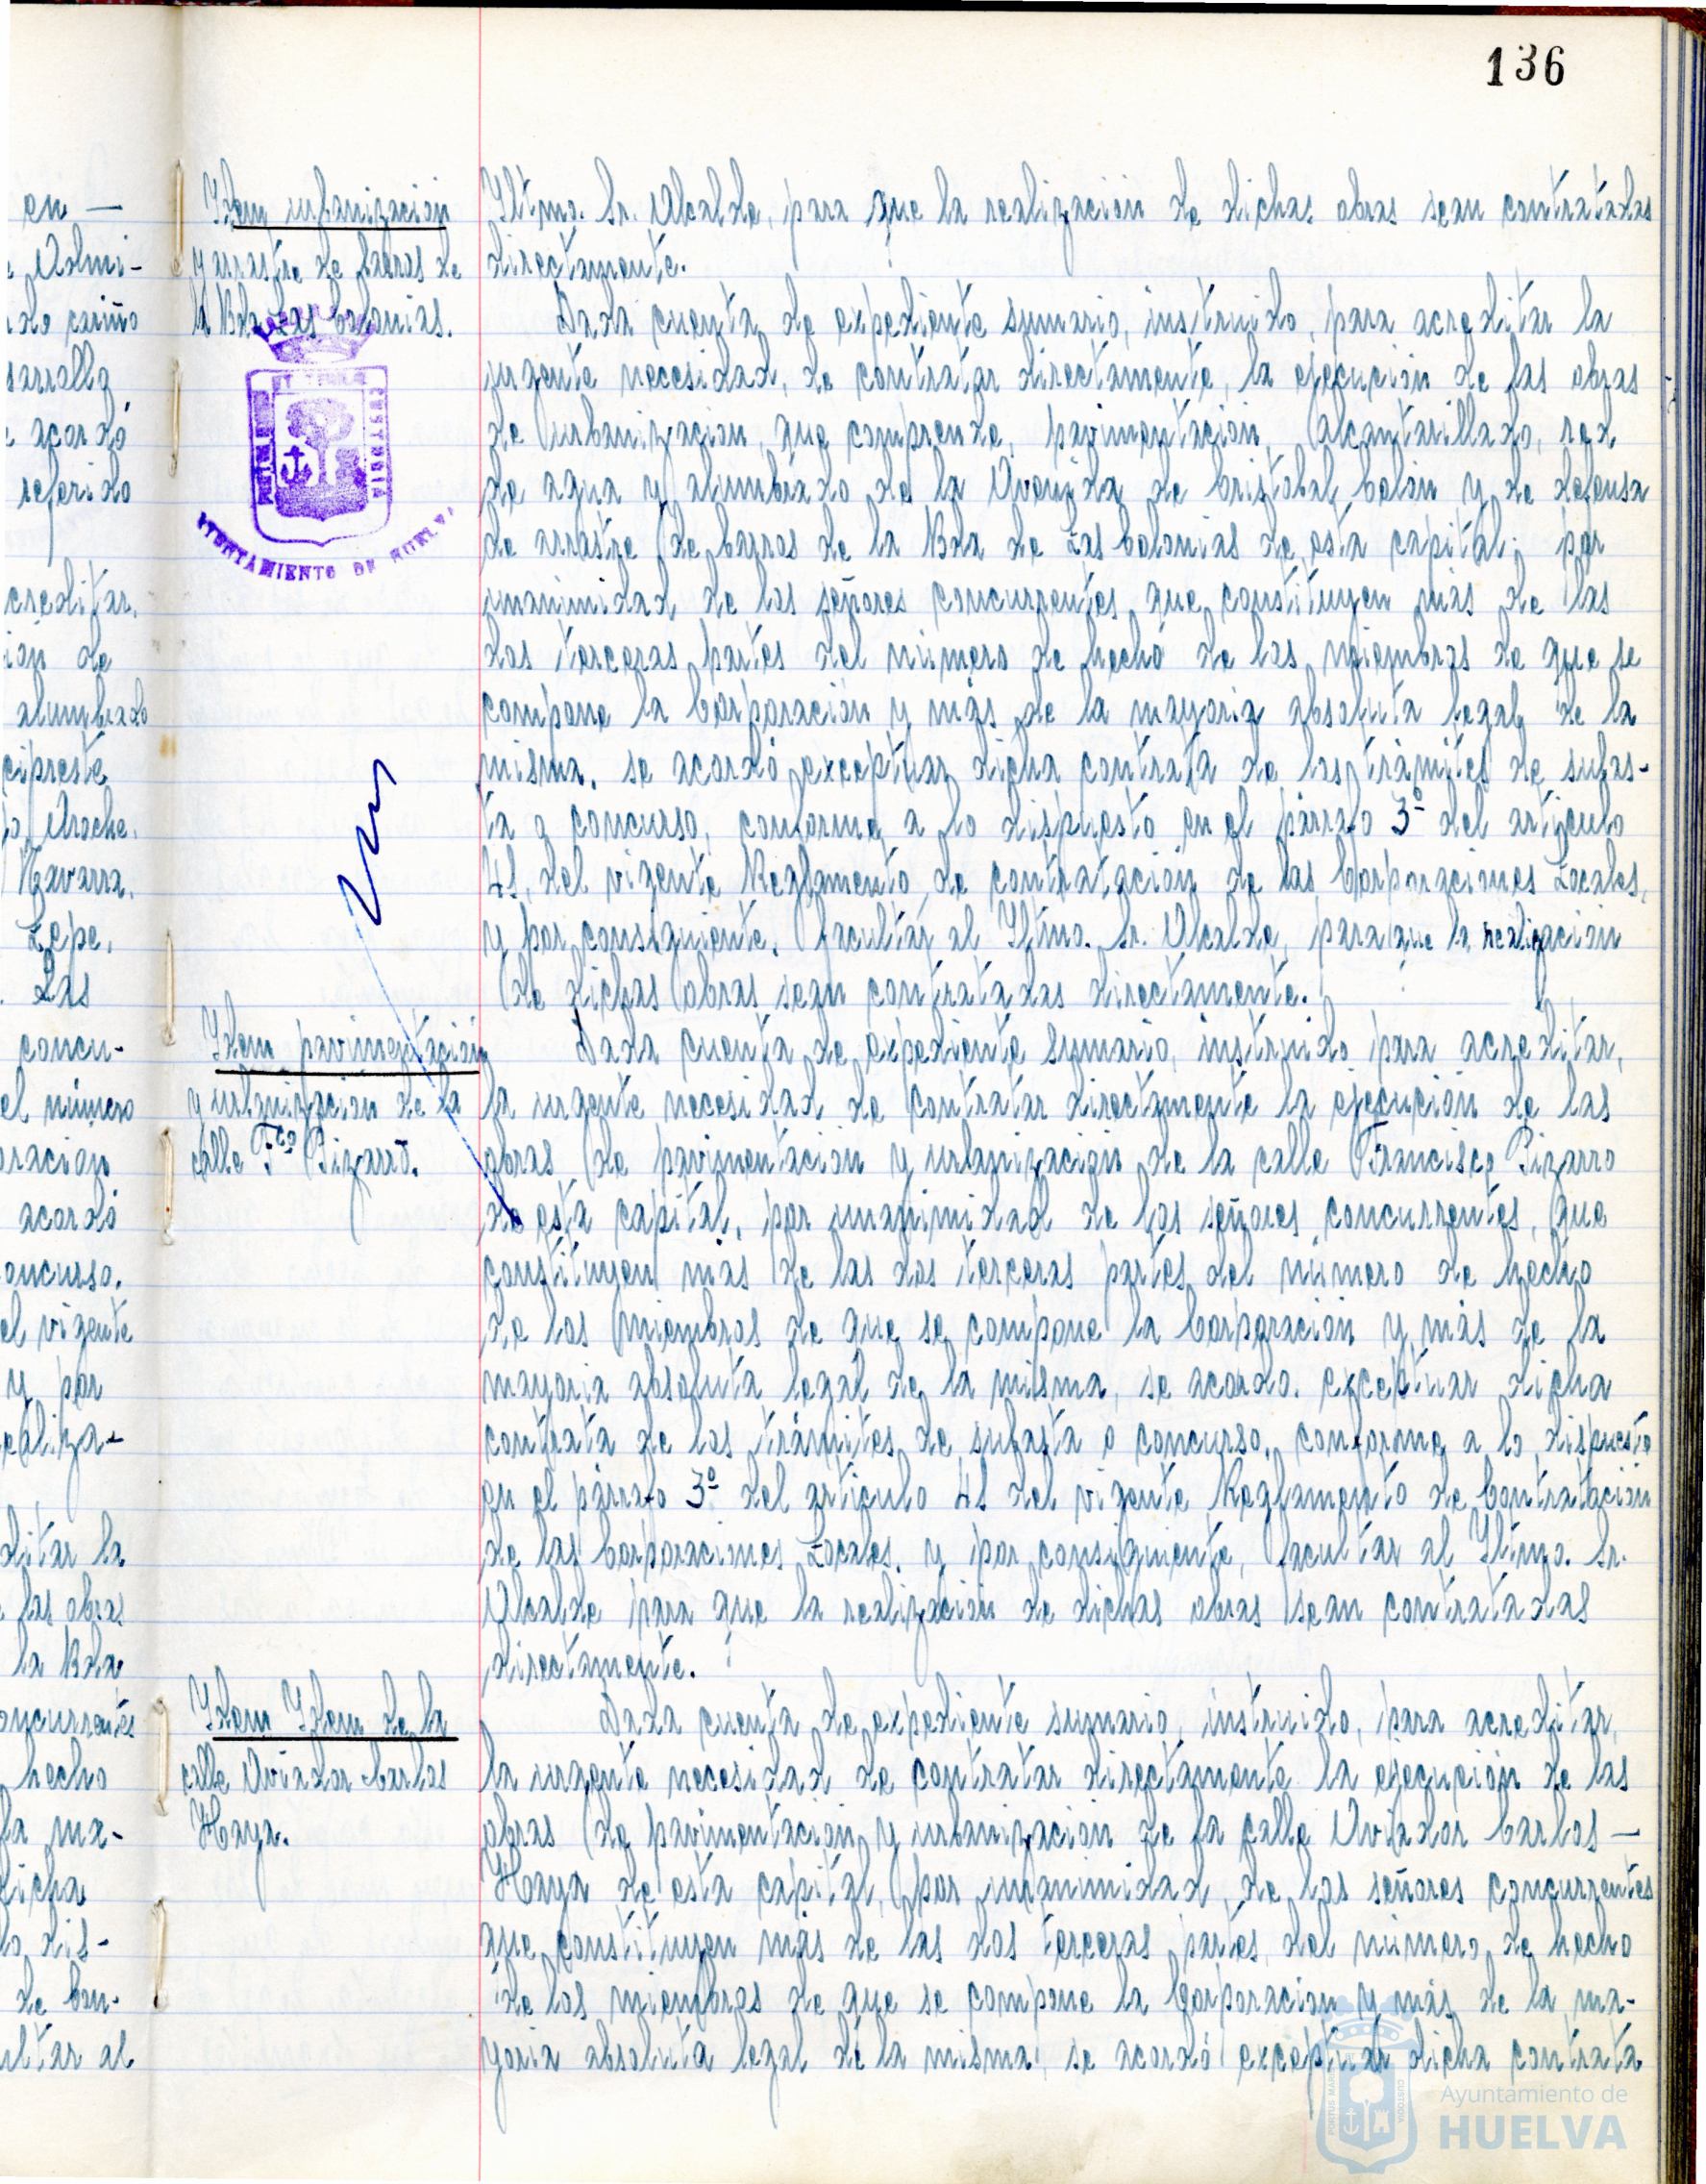 136
en —
e Admi-
de cariño
sarrolla
e acordó
referido
creditar,
ion de
alumbrado
cipreste
Aroche,
Navarra,
Lepe,
Las
concu-
el número
oracion
acordó
oncurso,
el vigente
y por
ealiza-
ditar la
e las obras
la Bda
oncurrentes
hecho
la ma-
dicha
lo dis-
de Con-
ultar al
Idem urbanizacion
y arrastre de barros de
la Bda Las Colonias.
AYUNTAMIENTO DE HUELVA
Idem pavimentación
y urbanizacion de la
calle Fco Pizarro.
Idem Idem de la
calle Aviador Carlos
Haya.
Iltmo. Sr. Alcalde, para que la realización de dichas obras sean contratadas
directamente.
Dada cuenta de expediente sumario, instruido, para acreditar la
urgente necesidad, de contratar directamente, la ejecución de las obras
de urbanizacion, que comprende, pavimentacion, alcantarillado, red
de agua y alumbrado de la Avenida de Cristobal Colón y de defensa
de arrastre de barros de la Bda de Las Colonias de esta capital; por
unanimidad de los señores concurrentes que constituyen más de las
dos terceras partes del número de hecho de los miembros de que se
compone la Corporación y más de la mayoria absoluta legal de la
misma, se acordó exceptuar dicha contrata de los trámites de subas-
ta o concurso, conforme a lo dispuesto en el párrafo 3º del articulo
41, del vigente Reglamento de contratación de las Corporaciones Locales,
y por consiguiente, facultar al Iltmo. Sr. Alcalde, para que la realizacion
de dichas obras sean contratadas directamente.
Dada cuenta de expediente sumario, instruido para acreditar,
la urgente necesidad de contratar directamente la ejecución de las
obras de pavimentación y urbanización de la calle Francisco Pizarro
de esta capital, por unanimidad de los señores concurrentes, que
constituyen mas de las dos terceras partes del número de hecho
de los miembros de que se compone la Corporación y más de la
mayoria absoluta legal de la misma, se acordo. exceptuar dicha
contrata de los trámites de subasta o concurso, conforme a lo dispuesto
en el párrafo 3º del articulo 41 del vigente Reglamento de Contratacion
de las Corporaciones Locales, y por consiguiente, facultar al Iltmo. Sr.
Alcalde para que la realización de dichas obras sean contratadas
directamente.
Dada cuenta de expediente sumario, instruido, para acreditar,
la urgente necesidad de contratar directamente la ejecución de las
obras de pavimentacion y urbanizacion de la calle Aviador Carlos —
Haya de esta capital, por unanimidad, de los señores concurrentes
que constituyen más de las dos terceras partes, del número, de hecho
de los miembros de que se compone la Corporacion y más de la ma-
yoria absoluta legal de la misma, se acordó exceptuar dicha contrata
Ayuntamiento de
HUELVA